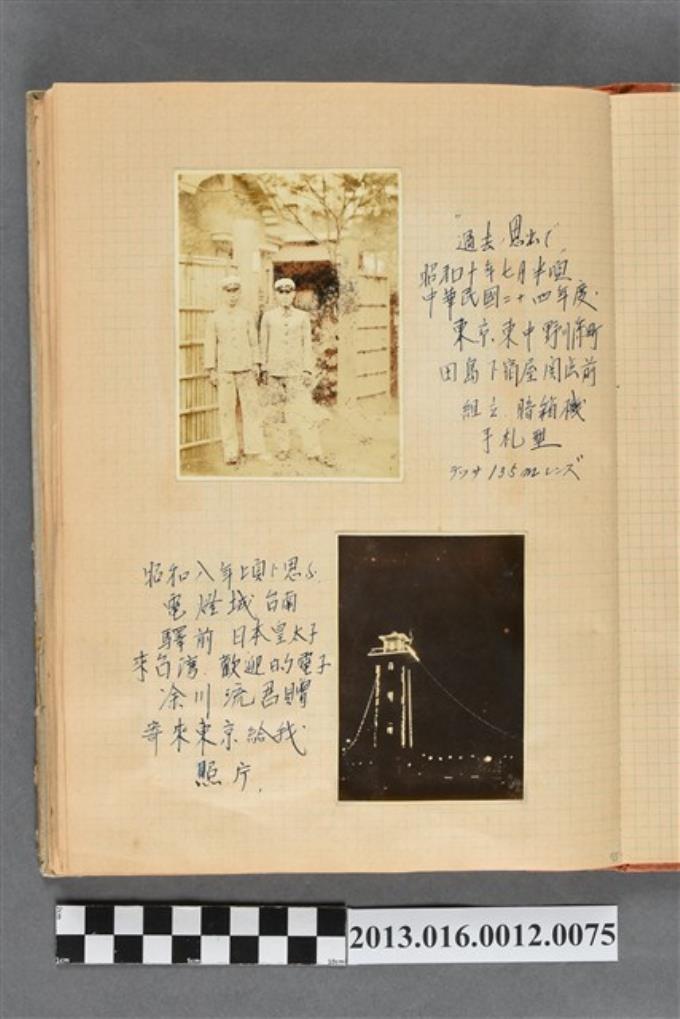 "過去ノ思出"
昭和十年七月半頃
中華民國二十四年度
東京東中野川添町
田島下宿屋関出前
組立 暗箱機
手札型
テッサ 135 レンズ
昭和八年頃ト思ふ
電燈城 台南
驛前 日本皇太子
來台湾 歡迎的電子
涂川流君贈
寄來東京給我
照片
1cm 5cm 10cm
2013.016.0012.0075